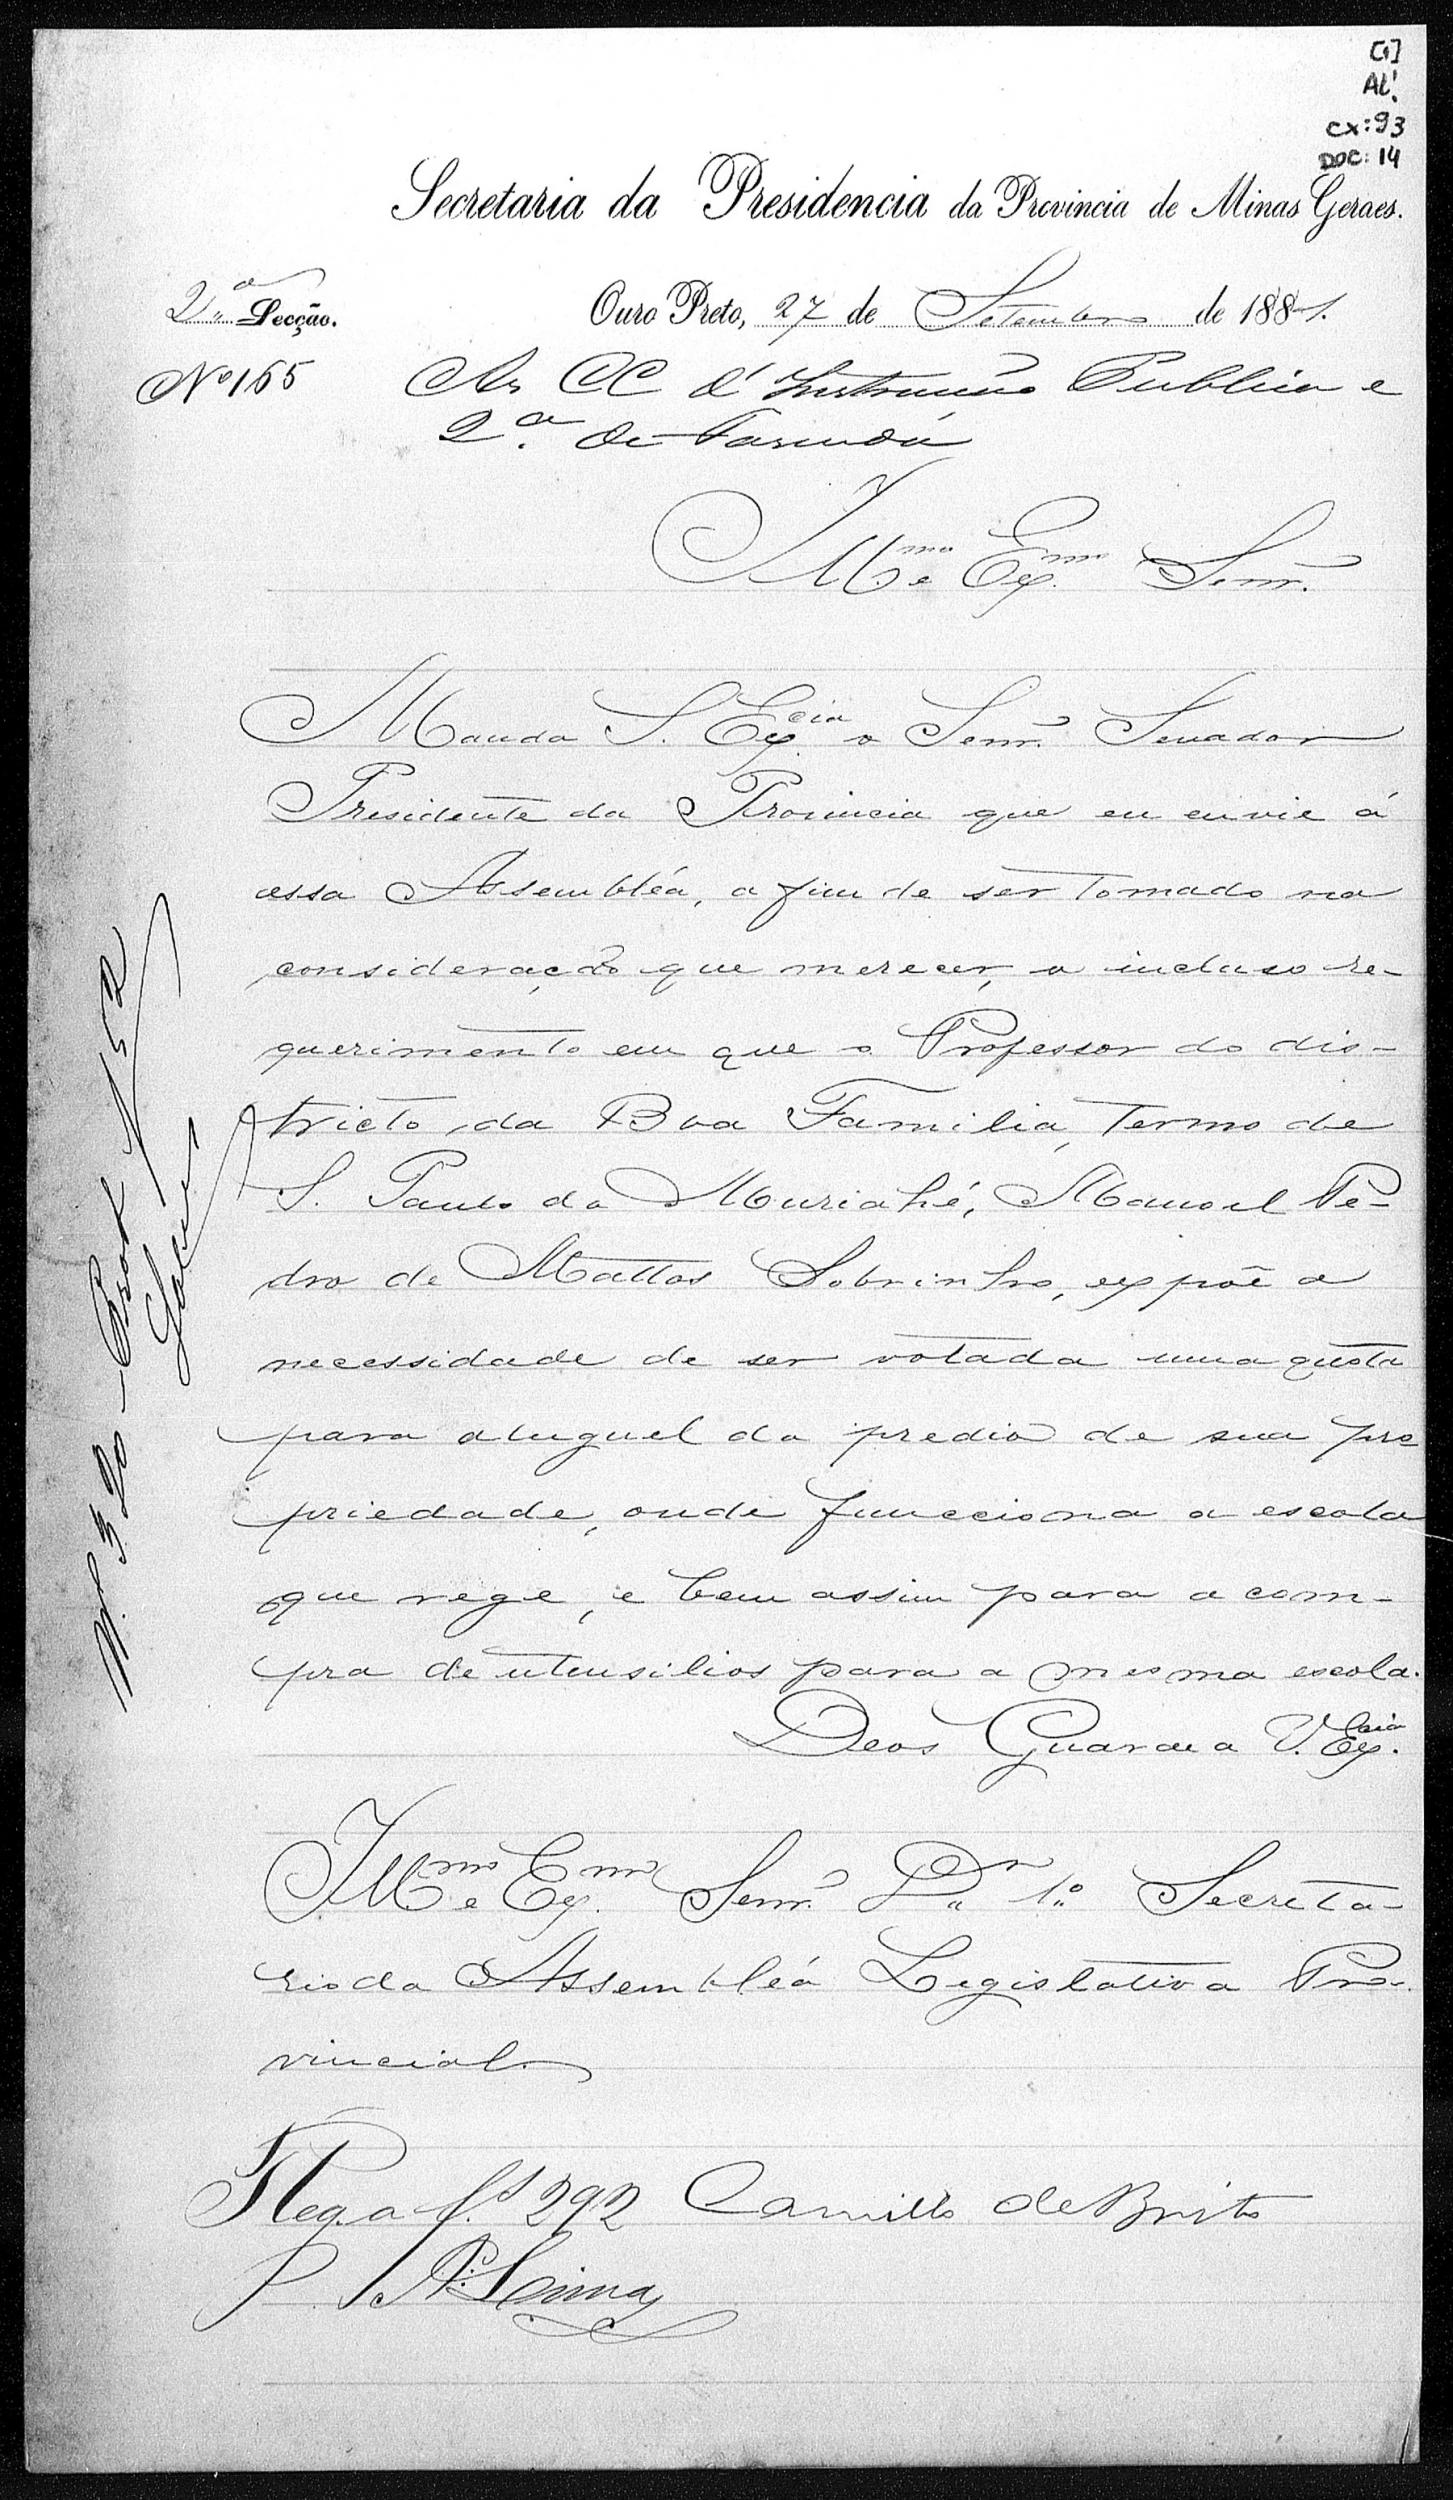 [1]
AL!
CX: 93
DOC: 14
Secretaria da Presidencia da Provincia de Minas Geraes.
2ª Secção.
Ouro Preto, 27 de Setembro de 1881.
Nº 165
As CC d'Instrucção Publica e
2.ª de Fasenda
Illmo e Exmo Senr.
Manda S. Excia o Senr. Senador
Presidente da Provincia que eu envie á
essa Assembléa, a fim de ser tomado na
consideração que merecer, o incluso re-
querimento em que o Professor do dis-
tricto da Boa Familia, Termo de
S. Paulo do Muriahé, Manoel Pe-
dro de Mattos Sobrinho, expõe a
necessidade de ser votada uma quota
para aluguel do predio de sua pro
priedade, onde funcciona a escola
que rege, e bem assim para a com-
pra de utensilios para a mesma escola.
Deos Guarde a V. Excia.
Illmo e Exmo Senr. Dr. 1º Secreta-
rio da Assembléa Legislativa Pro-
vincial
Reg. a fs 292
Camillo de Brito